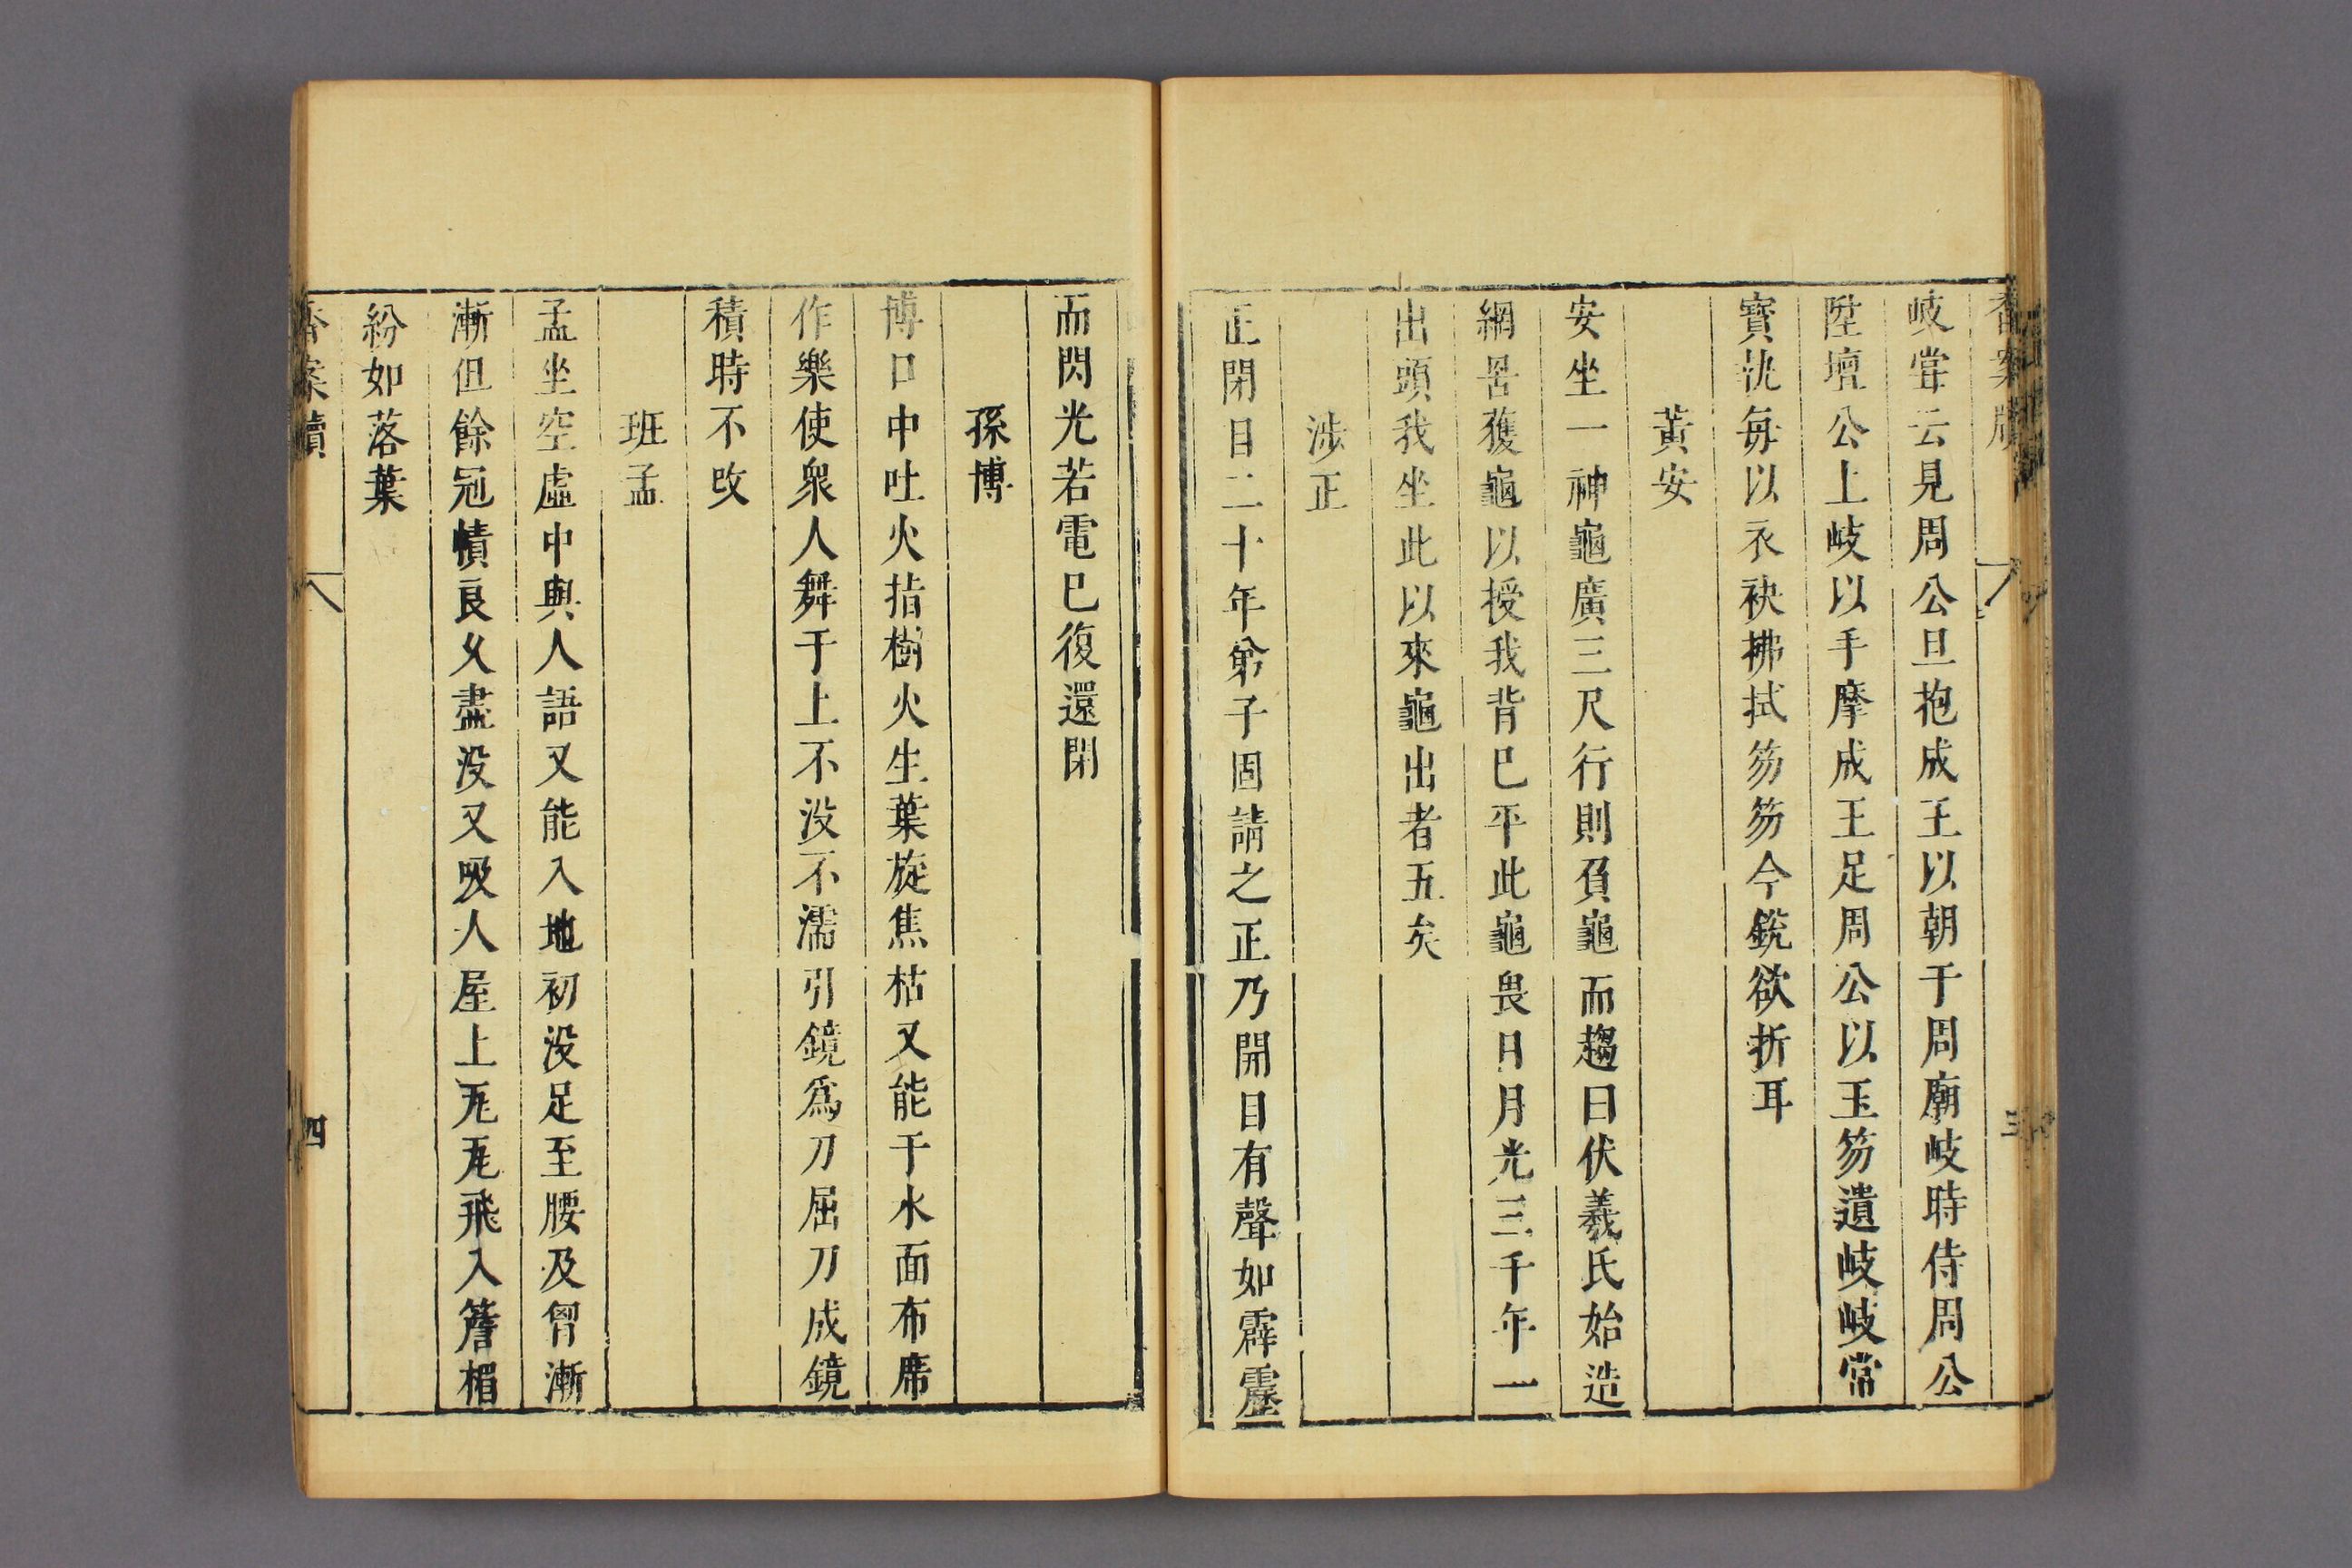 香案牘
三
岐嘗云見周公旦抱成王以朝于周廟岐時侍周公
陞壇公上岐以手摩成王足周公以玉笏遺岐岐常
寳执每以衣袂拂拭笏笏今銳欲折耳
黃安
安坐一神龜廣三尺行則負龜而趨曰伏羲氏始造
網罟獲龜以授我背已平此龜畏日月光三千年一
出頭我坐此以來龜出者五矣
涉正
正閉目二十年弟子固請之正乃開目有聲如霹靂
而閃光若電已復還閉
孫博
博口中吐火指樹火生葉旋焦枯又能于水面布席
作樂使衆人舞于上不没不濡引鏡爲刀屈刀成鏡
積時不改
班孟
孟坐空虛中與人語又能入地初没足至腰及胷漸
漸但餘冠幘良久盡没又吸人屋上瓦瓦飛入簷楣
紛如落葉
香案牘
四